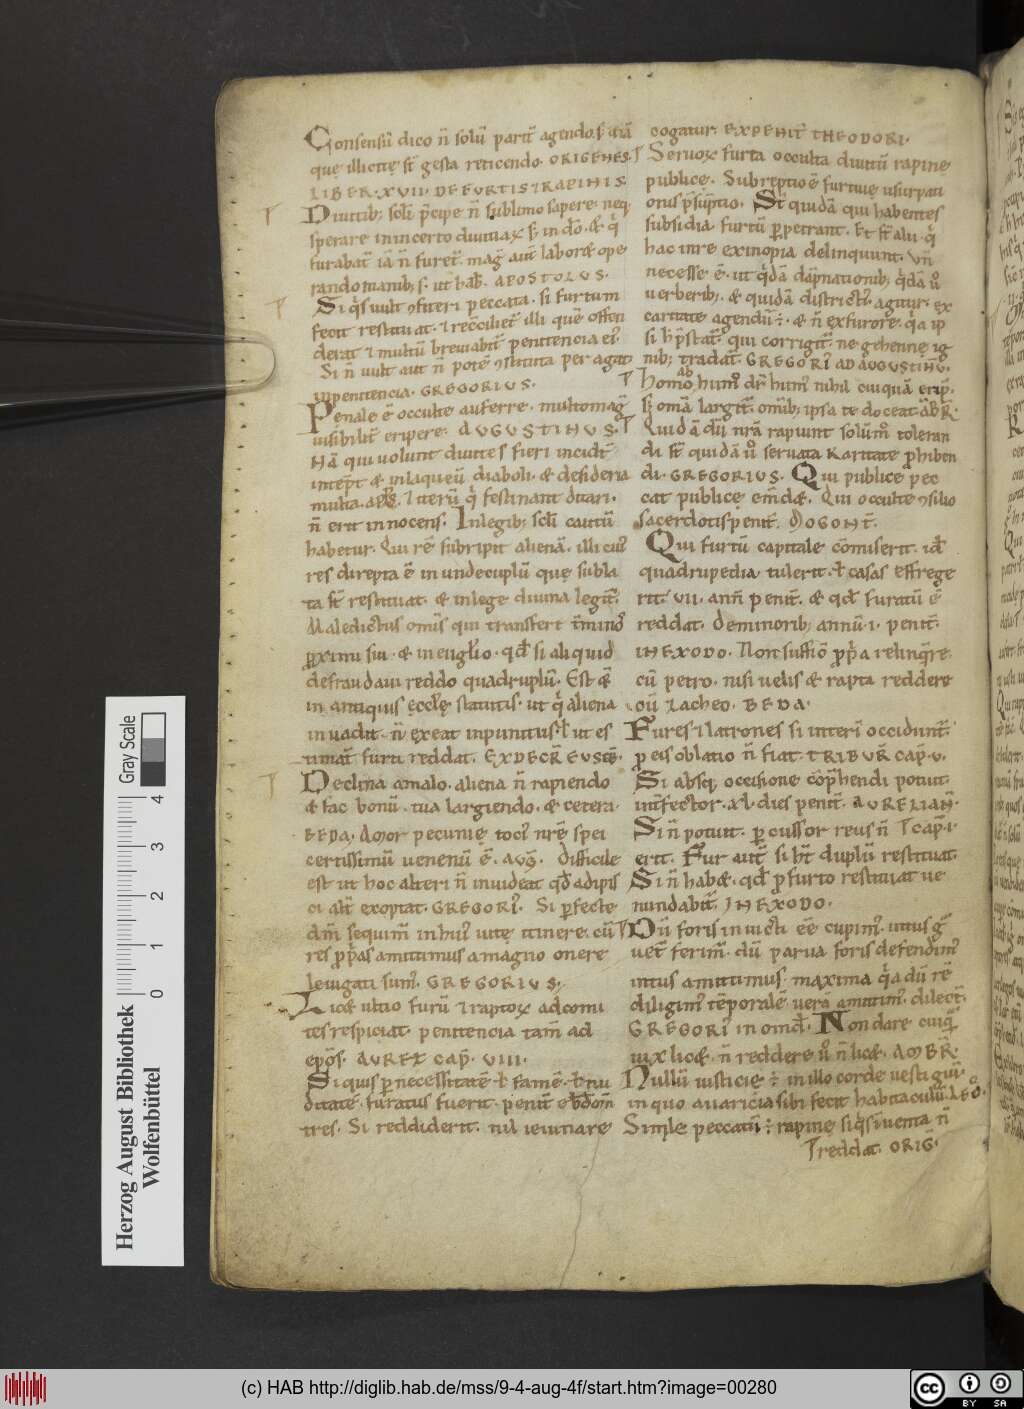 Consensū dico n̄ solū parit̄ agendo. s; etiā
que illicite st̄ gesta reticendo. ORIGENES.
LIBER. XVII. DE FURTIS ⁊ RAPINIS
Diuitib; scłi p̄cipe n̄ sublimo sapere. neq;
sperare in incerto diuitiaꝝ s; in dō. & q̄
furabat̄ iā n̄ furet̄. mag̕ aut̄ laboret ope
rando manib; s. ut hab̄. APOSTOLUS.
Si q̄s uult ꝯfiteri peccata. si furtum
fecit restituat. ⁊ recōciliet̄ illi quē offen
derat ⁊ multū breuiabit̄ penitencia ei̕.
Si n̄ uult aut n̄ potē ꝯstituta per agat
in penitencia. GREGORIUS.
Penale ē occulte auferre. multo mag̕
uisibilit̄ eripere. AUGUSTINUS.
Nā qui uolunt diuites fieri incidūt
in tept̄ & in laqueū diaboli. & desideria
multa. apłs. Iterū q̄ festinant ditari.
n̄ erit innocens. In legib; scłi cautū
habetur. Qui rē subripit alienā. illi cui̕
res direpta ē in undecuplū que subla
ta st̄ restituat. & in lege diuina legit̄.
Maledictus omīs qui transfert t̄mino̕
proximi sui. & in euglo. qd̄ si aliquid
defraudaui reddo quadruplū. Est &
in antiquis eccłe statutis. ut q̄ aliena
inuadit. n̄ exeat inpunitus. ł ut es
timat̄ furti reddat. EX DECR̄ EUSEB̄.
Declina a malo. aliena n̄ rapiendo
& fac bonū. tua largiendo. & cetera.
BEDA. Amor pecunie toci̕ nrē spei
certissimū uenenū ē. AUG̕. Difficile
est ut hoc alteri n̄ inuideat qd̄ adipis
ci alt̄ exoptat. GREGORI̕. Si perfecte
dm̄ sequim̄ in hui̕ uite itinere. cū
res p̄p̄as amittimus a magno onere
leuigati sum̕. GREGORIUS;
Licet ultio furū ⁊ raptoꝝ ad comi
tes respiciat. penitencia tam̄ ad
ep̄os. AUREL̄ CAP̄. VIII.
Si quis p̄ necessitatē ł famē. ł nu
ditatē. furatus fuerit. penit̄ ebdom̄
tres. Si reddiderit. nil ieiunare
cogatur. EX PENIT̄ THEODORI.
Seruoꝝ furta occulta diuitū rapine
publice. Subreptio ē furtiue usurpati
onis p̄sūptio. St̄ quidā qui habentes
subsidia. furtū ꝑpetrant. Et st̄ alii. q̄
hac in re ex inopia delinquunt. Vn̄
necesse ē. ut q̄dā dāpnationib; q̄dā ū
uerberib; & quidā district̕ agitur. ex
caritate agendū ÷. & n̄ ex furore. q̄a ip
si hp̄stat̄. qui corrigit̄. ne gehenne ig
nib; tradat̄. GREGORI̕ AD AUGUSTINŪ.
Homo ab hum̄ dr̄ hum̕ nihil cuiquā erip̄.
s; omā largit̄. omīb; ipsa te doceat. ĀBR̄.
Quidā dū nrā rapiunt solūm̕ toleran
di. st̄ quidā ū seruata karitate p̄hiben
di. GREGORIUS. Qui publice pec
cat publice em̄d&. Qui occulte ꝯsilio
sacerdotis penit̄. MOGONT̄.
Qui furtū capitale cōmiserit. id̄
quadrupedia tulerit. ł casas effrege
rit. VII. ann̄ penit̄. & qd̄ furatū ē
reddat. De minorib; annū. I. penit̄.
IN EXODO. Non sufficit p̄p̄a relinq̄re.
cū petro. nisi uelis & rapta reddere
cū zacheo. BEDA.
Fures ⁊ latrones si interī occidunt̄.
p̄ eis oblatio n̄ fiat. TRIBUR̄ CAP̄. V.
Si absq; occisione cōp̄hendi potuit.
int̄fector. XL. dies penit̄. AURELIAN̄.
Si n̄ potuit. ꝑcussor reus n̄ CAP̄. I.
erit. Fur aut̄ si ht̄ duplū restituat.
Si n̄ habet. qd̄ p̄ furto restituat ue
nundabit̄. IN EXODO.
Dū foris inuicti eē cupim̕. intus gͣ
uet̄ ferim̄. dū parua foris defendim̕
intus amittimus maxima. q̄a dū rē
diligim̕ tēporalē uera amittim̕ dilect̄.
GREGORI̕ in omel̄. Non dare cuiq̄
uix licet. n̄ reddere ū n̄ licet. AMBR̄.
Nullū iusticie ÷ in illo corde uestigiū.
in quo auaricia sibi fecit habitaculū. LEO.
Simple peccatū ÷ rapine si q̄s inuenta n̄
reddat. ORIG̕.
Gray Scale
0 1 2 3 4
Herzog August Bibliothek
Wolfenbüttel
(c) HAB http://diglib.hab.de/mss/9-4-aug-4f/start.htm?image=00280
cc BY SA